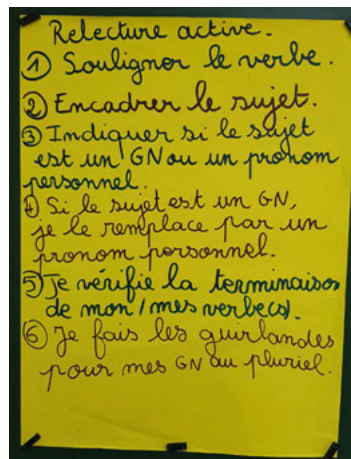 Relecture active.
① Souligner le verbe.
② Encadrer le sujet.
③ Indiquer si le sujet
est un GN ou un pronom
personnel.
④ Si le sujet est un GN,
je le remplace par un
pronom personnel.
⑤ Je vérifie la terminaison
de mon/mes verbe(s).
⑥ Je fais les guirlandes
pour mes GN au pluriel.